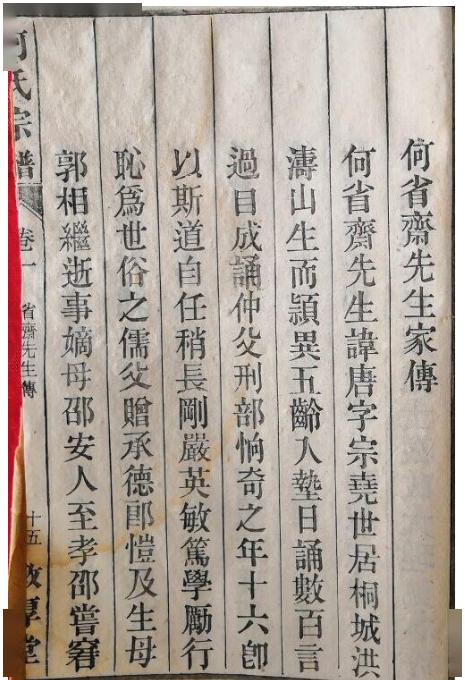 何省齋先生家傳
何省齋先生諱唐字宗堯世居桐城洪
濤山生而頴異五齡入塾日誦數百言
過目成誦仲父刑部恦奇之年十六卽
以斯道自任稍長剛嚴英敏篤學勵行
恥爲世俗之儒父贈承德郎愷及生母
郭相繼逝事嫡母邵安人至孝邵嘗窘
何氏宗譜
卷一
省齋先生傳
十五
敦厚堂